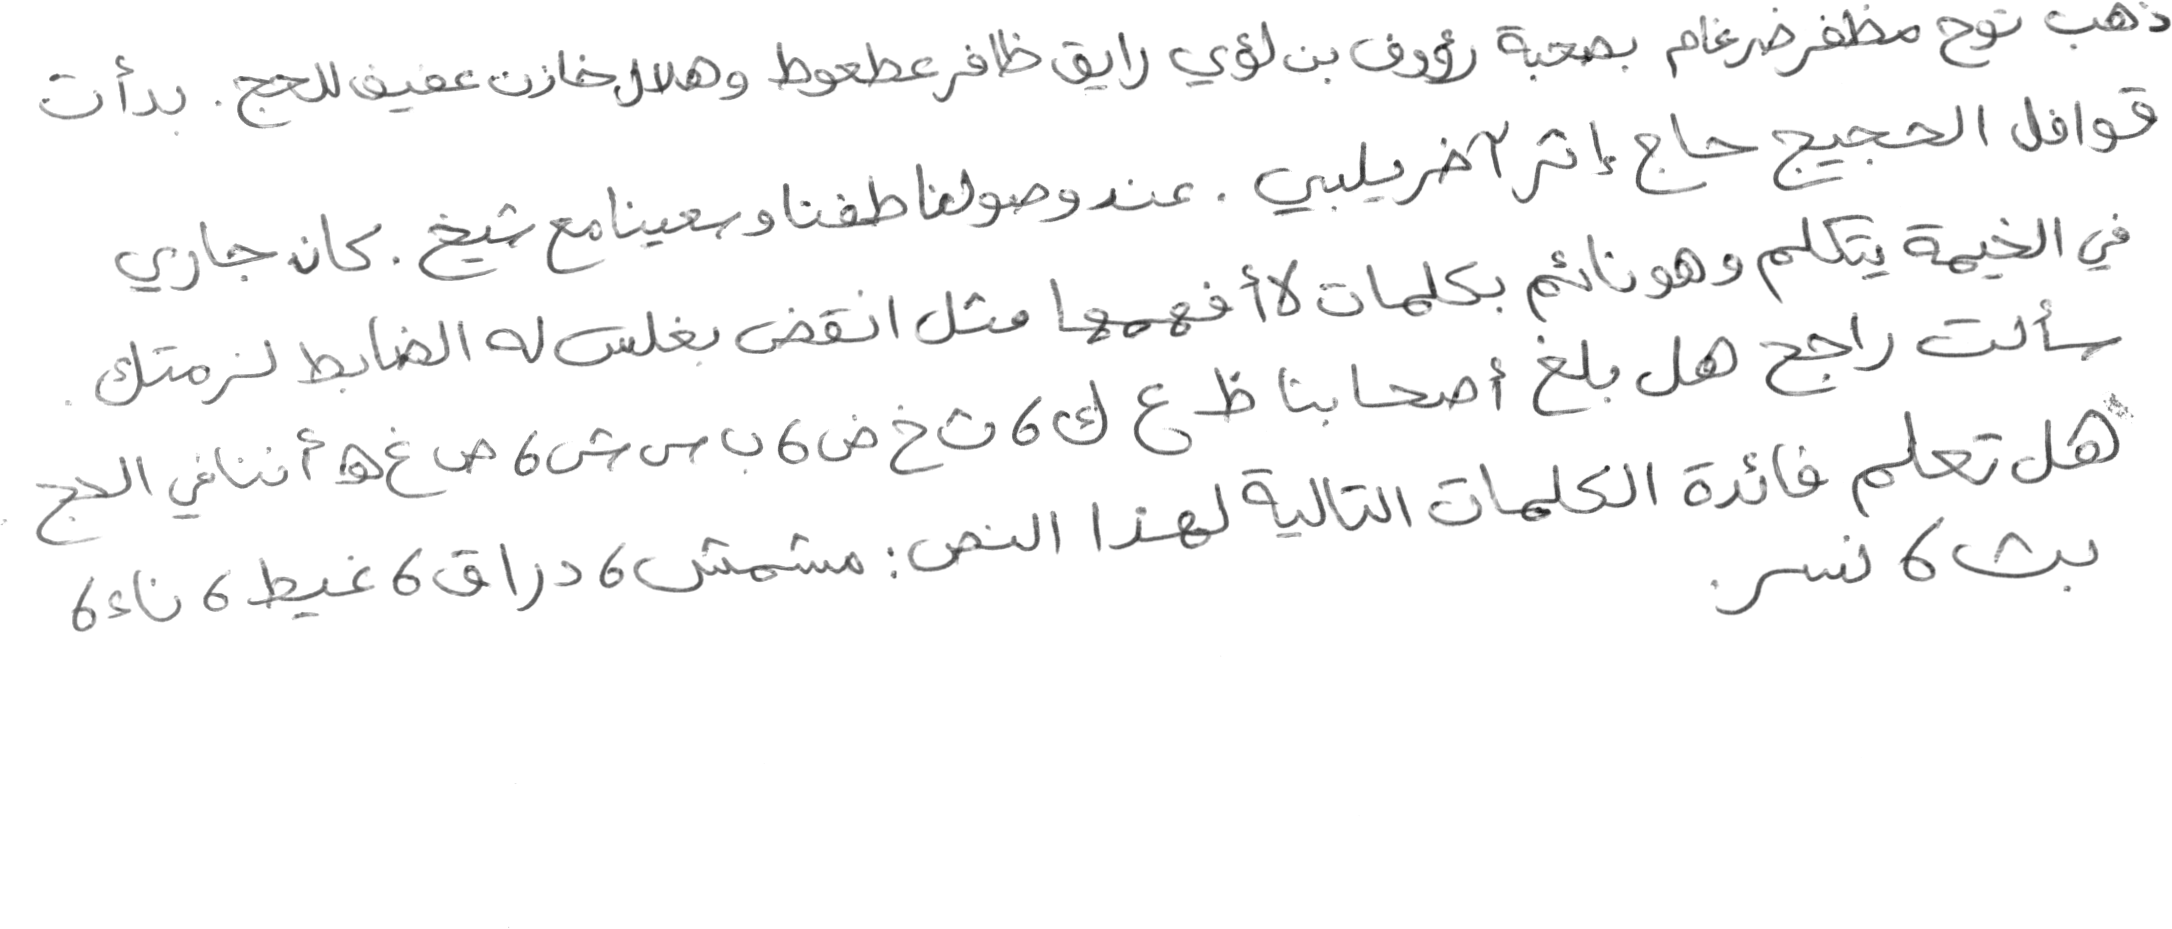 ذهب نوح مظفر ضرغام بصحبة رؤوف بن لؤي رايق ظافر عطعوط وهلال خازن عفيف للحج. بدأت
قوافل الحجيج حاج إثر آخر يلبي. عند وصولنا طفنا وسعينا مع شيخ. كان جاري
في الخيمة يتكلم وهو نائم بكلمات لا أفهمها مثل انقض بغلس له الضابط لزمتك.
سألت راجح هل بلغ أصحابنا ظ ع ك 6 ث خ ض 6 ب س ش 6 ص غ هـ أننا في الحج
هل تعلم فائدة الكلمات التالية لهذا النص: مشمش 6 دراق 6 غيط 6 ناء 6
بث 6 نسر.